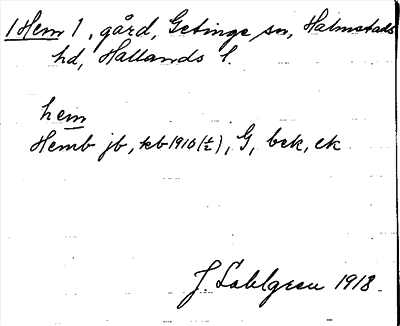 1 Hem 1, gård, Getinge sn, Halmstads
hd, Hallands l.
hem
Hemb jb, kb 1910 (½), G, bek, ek
J. Sahlgren 1918.